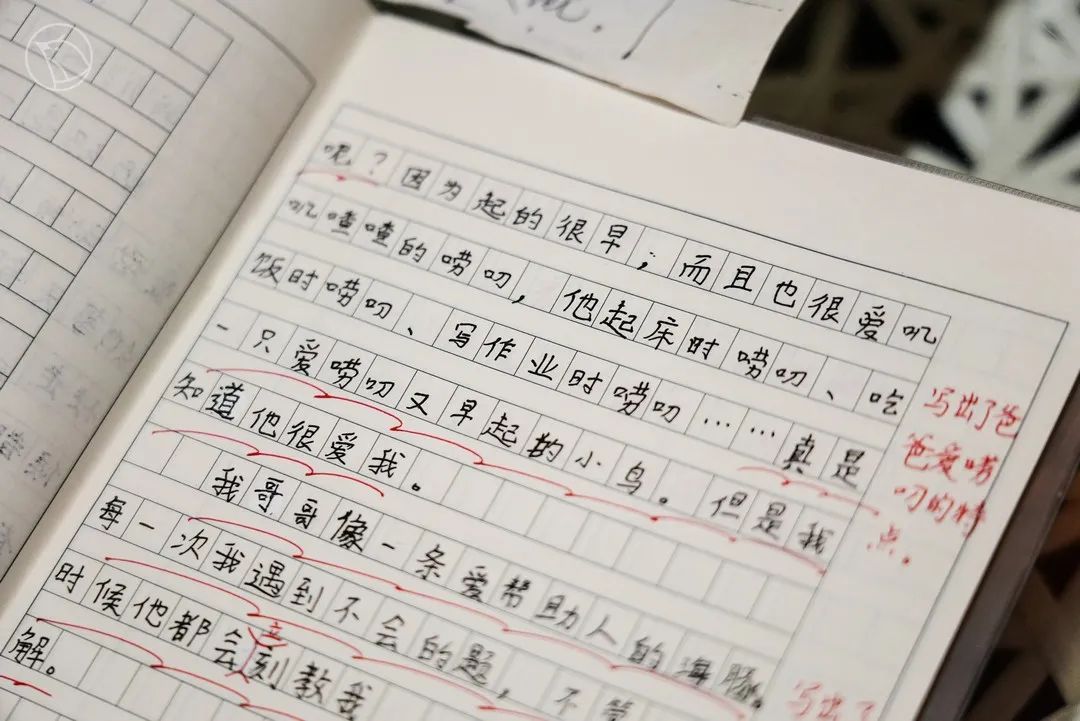 呢？因为起的很早，而且也很爱叽
叽喳喳的唠叨，他起床时唠叨、吃
饭时唠叨、写作业时唠叨……真是
一只爱唠叨又早起的小鸟。但是我
知道他很爱我。
我哥哥像一条爱帮助人的海豚。
每一次我遇到不会的题，不管
时候他都会刻教我
解。
写出了爸
爸爱唠
叨的特
点。
写出了